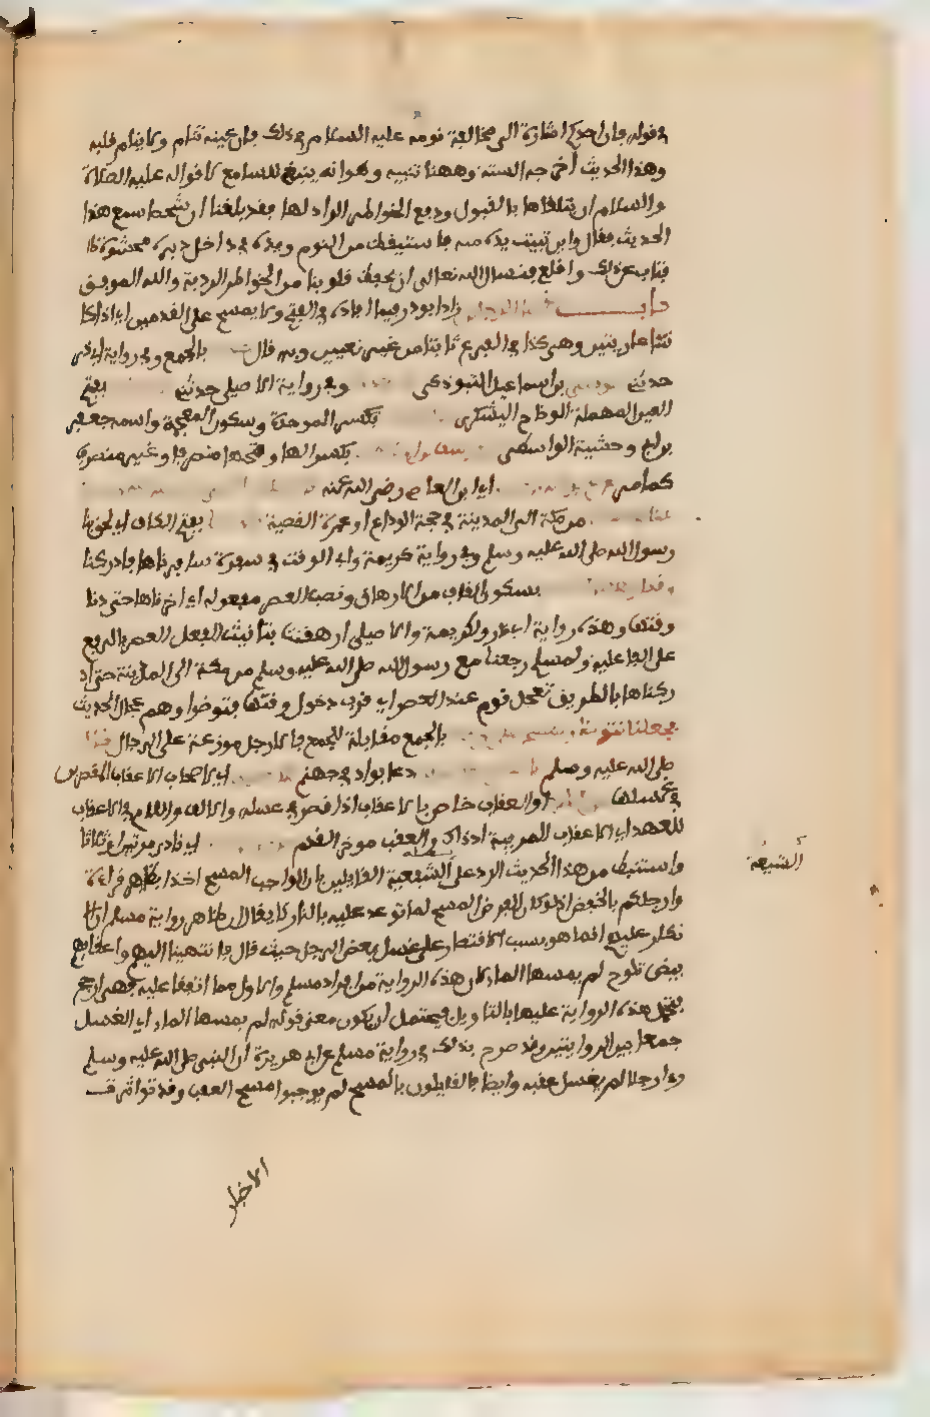 في قوله فإن أحدكم إشارة إلى مخالفة نومه عليه السلام في ذلك فإن عينه تنام ولا ينام قلبه
وهذا الحديث أخرجه الستة وههنا تنبيه وهو أنه ينبغي للسامع لأقواله عليه الصلاة
والسلام أن يتلقاها بالقبول ودفع الخواطر الرادة لها فقد بلغنا أن شخصا سمع هذا
الحديث فقال وأين تبيت يده منه فاستيقظ من النوم ويده في داخل دبره محشوة
فتاب عن ذلك وأقلع فنسأل الله تعالى أن يحفظ قلوبنا من الخواطر الردية والله الموفق
باب زاد أبو ذر فيما أفاده في الفتح ولا يمسح على القدمين أي إذا كا
نتا عاريتين وهي كذا في الفرع ثابتا من غير تعيين وبه قال بالجمع وفي رواية أبي ذر
حدثني موسى بن إسماعيل التبوذكي وفي رواية الأصيلي حدثني بفتح
العين المهملة الوضاح اليشكري بكسر الموحدة وسكون المعجمة واسمه جعفر
بن أبي وحشية الواسطي بكسر الهاء وفتحها منصرفا وغير منصرف
كما مر أي ابن العاص رضي الله عنه
من مكة إلى المدينة في حجة الوداع أو عمرة القضية بفتح الكاف أي لحق بنا
رسول الله صلى الله عليه وسلم وفي رواية كريمة وأبي الوقت في سفرة سافرناها فأدركنا
بسكون القاف من الإرهاق ونصب العصر مفعوله أي أخرناها حتى دنا
وقتها وهذه رواية أبي ذر ولكريمة والأصيلي أرهقتنا بتأنيث الفعل العصر بالرفع
على الفاعلية ولمسلم رجعنا مع رسول الله صلى الله عليه وسلم من مكة إلى المدينة حتى إذ
ركناها بالطريق تعجل قوم عند العصر أي قرب دخول وقتها فتوضوا وهم عجال الحديث
فجعلنا نتوضأ ونمسح بالجمع مقابلة للجمع فالأرجل موزعة على الرجال
صلى الله عليه وسلم دعا بواد في جهنم أي لأصحاب الأعقاب المقصرين
في غسلها أو العقاب خاص بالأعقاب إذا قصر في غسلها والألف واللام في الأعقاب
للعهد أي الأعقاب المرئية إذ ذاك والعقب مؤخر القدم أي نادى مرتين أو ثلاثا
واستنبط من هذا الحديث الرد على الشيعية القايلين بأن الواجب المسح أخذا بظاهر قراءة
وأرجلكم بالخفض إذ لو كان الفرض المسح لما توعد عليه بالنار لا يقال إن ظاهر رواية مسلم أن الا
نكار عليهم إنما هو بسبب الاقتصار على غسل بعض الرجل حيث قال فانتهينا إليهم وأعقابهم
بيض تلوح لم يمسها الماء لأن هذه الرواية من أفراد مسلم والأول مما اتفقا عليه فهي أرجح
فتحمل هذه الرواية عليها بالتأويل فيحتمل أن يكون معنى قوله لم يمسها الماء أي الغسل
جمعا بين الروايتين وقد صرح بذلك في رواية مسلم عن أبي هريرة أن النبي صلى الله عليه وسلم
رءا رجلا لم يغسل عقبه وأيضا فالقايلون بالمسح لم يوجبوا مسح العقب وقد تواترت
الأخبار
الشيعة